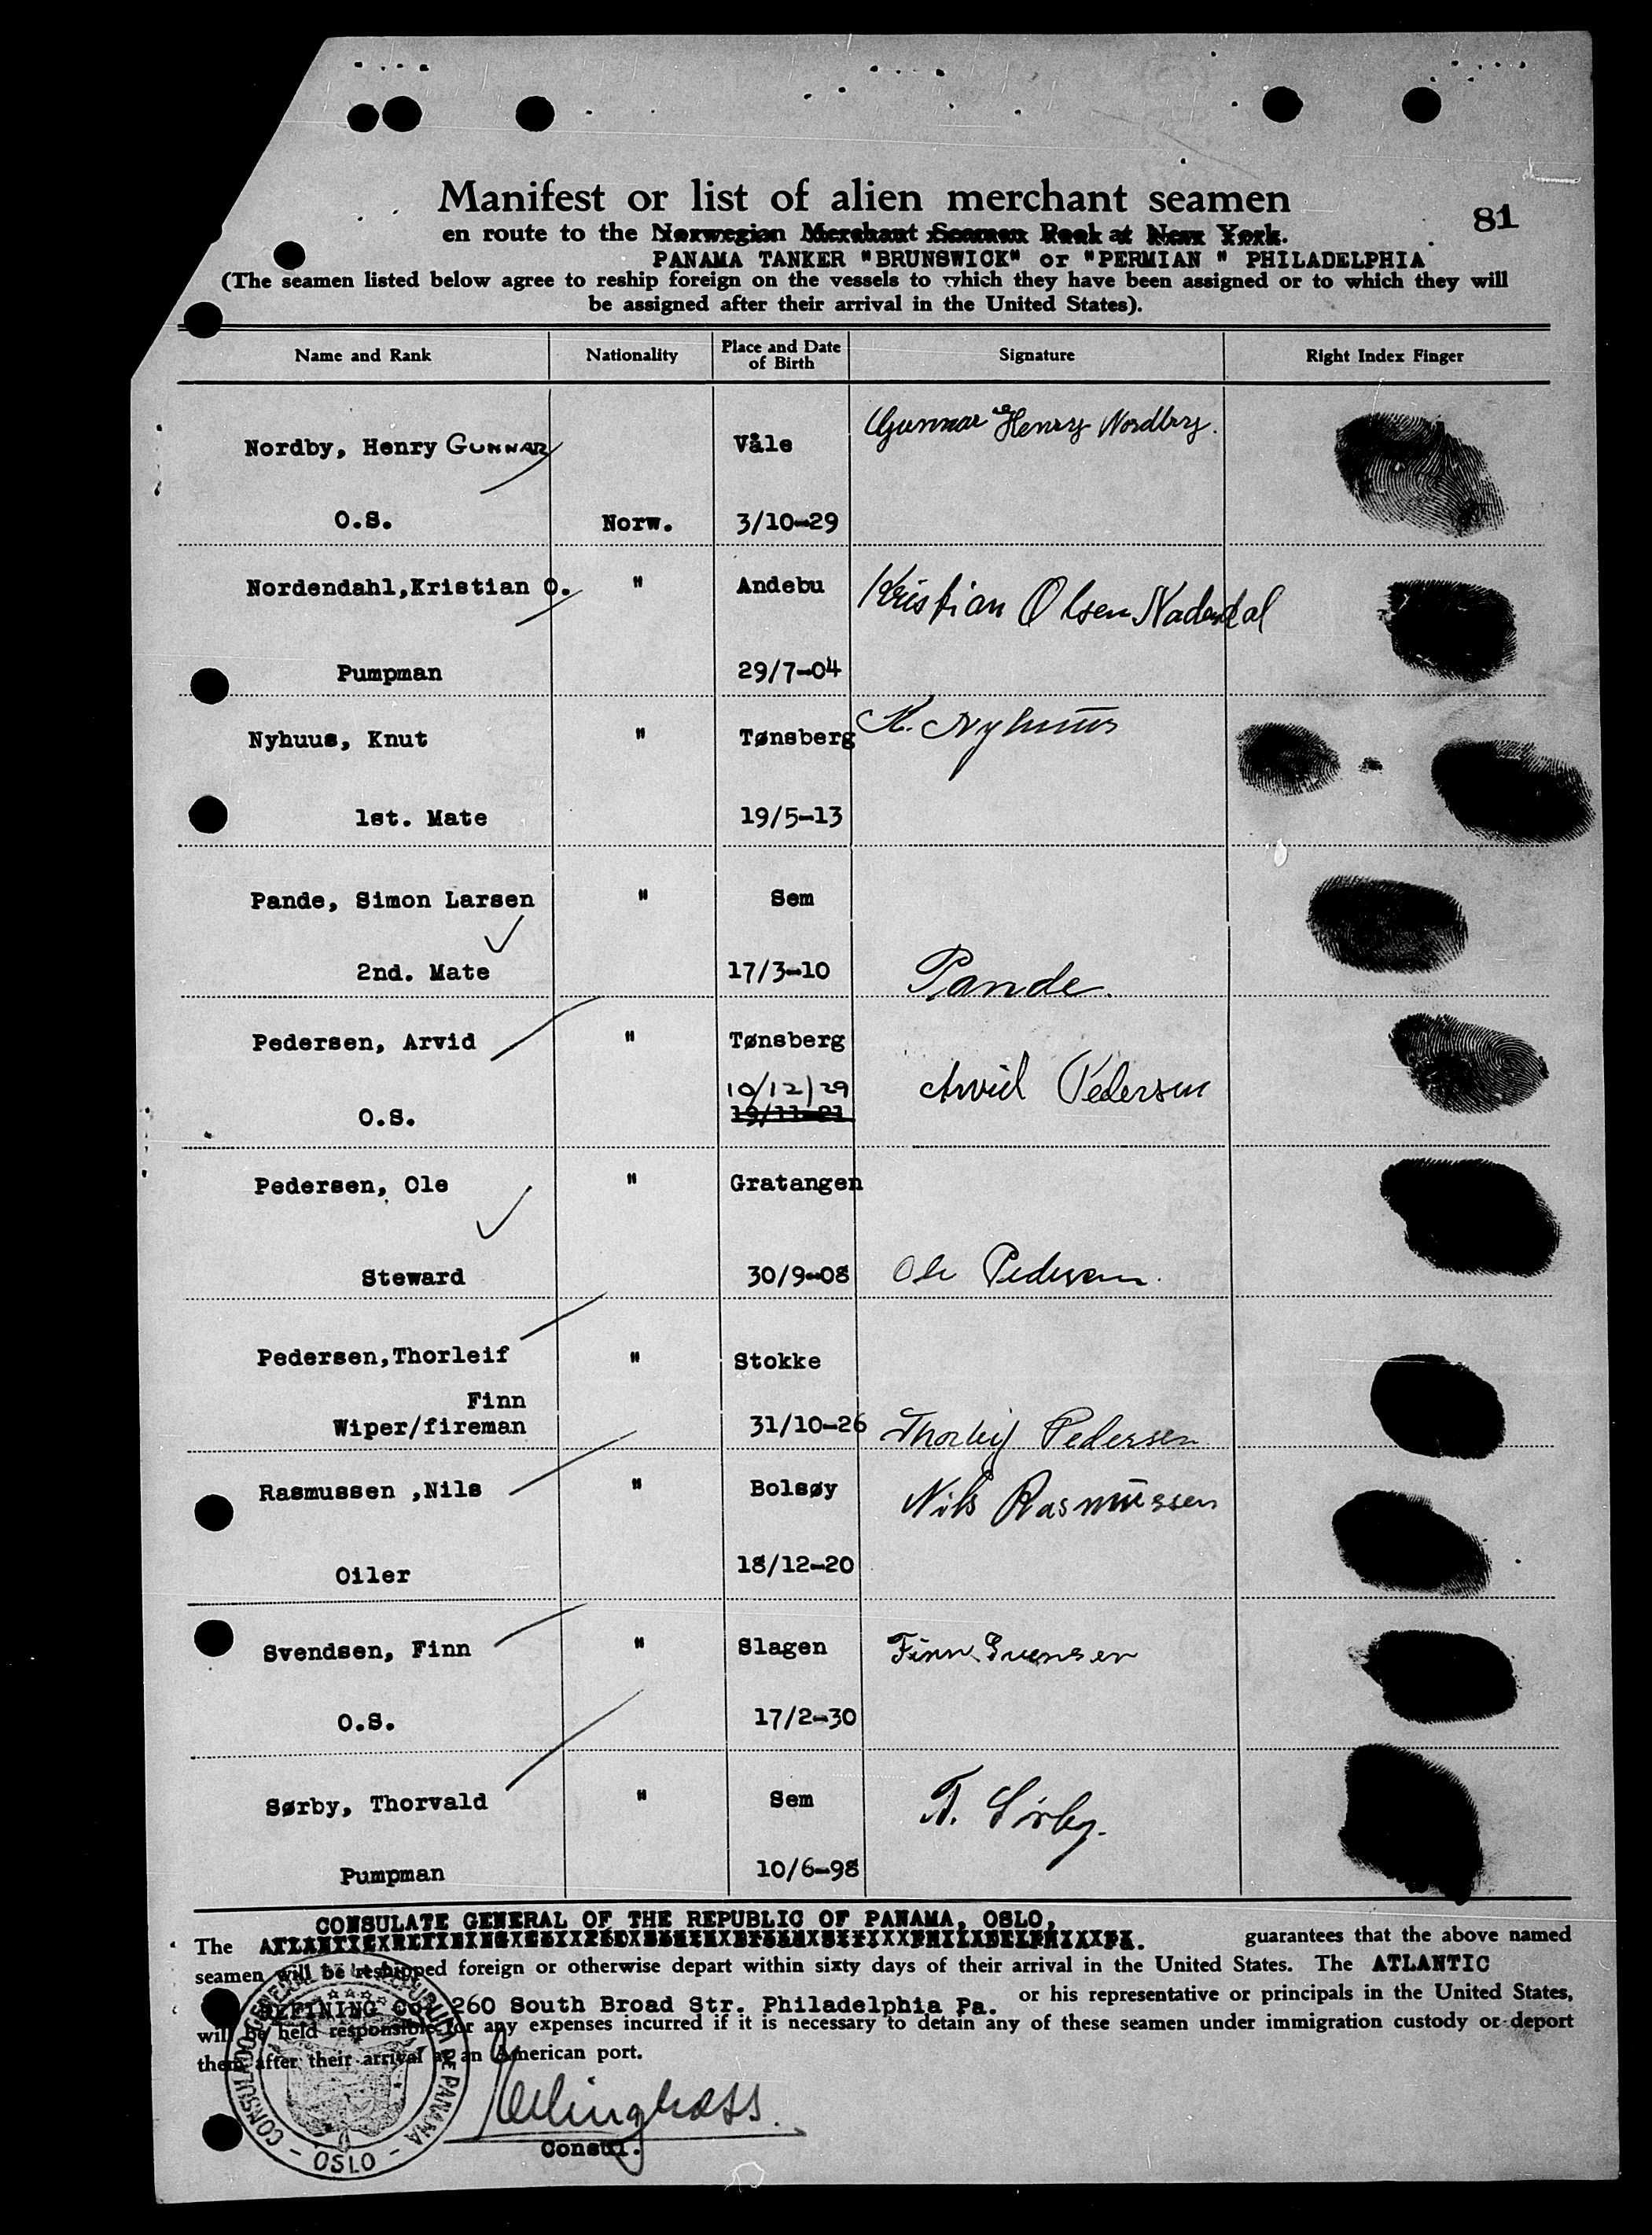 Manifest or list of alien merchant seamen
81
en route to the Norwegian Merchant Seamen Pool at New York.
PANAMA TANKER "BRUNSWICK" or "PERMIAN " PHILADELPHIA
(The seamen listed below agree to reship foreign on the vessels to which they have been assigned or to which they will
be assigned after their arrival in the United States).
Name and Rank Nationality Place and Date of Birth Signature Right Index Finger
Nordby, Henry GUNNAR Våle Gunnar Henry Nordbry.
O.S. Norw. 3/10-29
Nordendahl,Kristian O. " Andebu Kristian Olsen Nadendal
Pumpman 29/7-04
Nyhuus, Knut " Tønsberg K. Nyhuus
1st. Mate 19/5-13
Pande, Simon Larsen " Sem
2nd. Mate 17/3-10 Pande.
Pedersen, Arvid " Tønsberg
10/12/29 Arvid Pedersen
O.S. 19/11-21
Pedersen, Ole " Gratangen
Steward 30/9-08 Ole Pedersen.
Pedersen,Thorleif " Stokke
Finn
Wiper/fireman 31/10-26 Thorleif Pedersen
Rasmussen ,Nils " Bolsøy Nils Rasmussen
Oiler 18/12-20
Svendsen, Finn " Slagen Finn Svensen
O.S. 17/2-30
Sørby, Thorvald " Sem T. Sørby.
Pumpman 10/6-98
CONSULATE GENERAL OF THE REPUBLIC OF PANAMA, OSLO,
The guarantees that the above named
seamen will be reshipped foreign or otherwise depart within sixty days of their arrival in the United States. The ATLANTIC
REFINING Co. 260 South Broad Str. Philadelphia Pa. or his representative or principals in the United States,
will be held responsible for any expenses incurred if it is necessary to detain any of these seamen under immigration custody or deport
them after their arrival at an American port.
Consul.
CONSULADO GENERAL DE LA REPUBLICA DE PANAMA - OSLO -